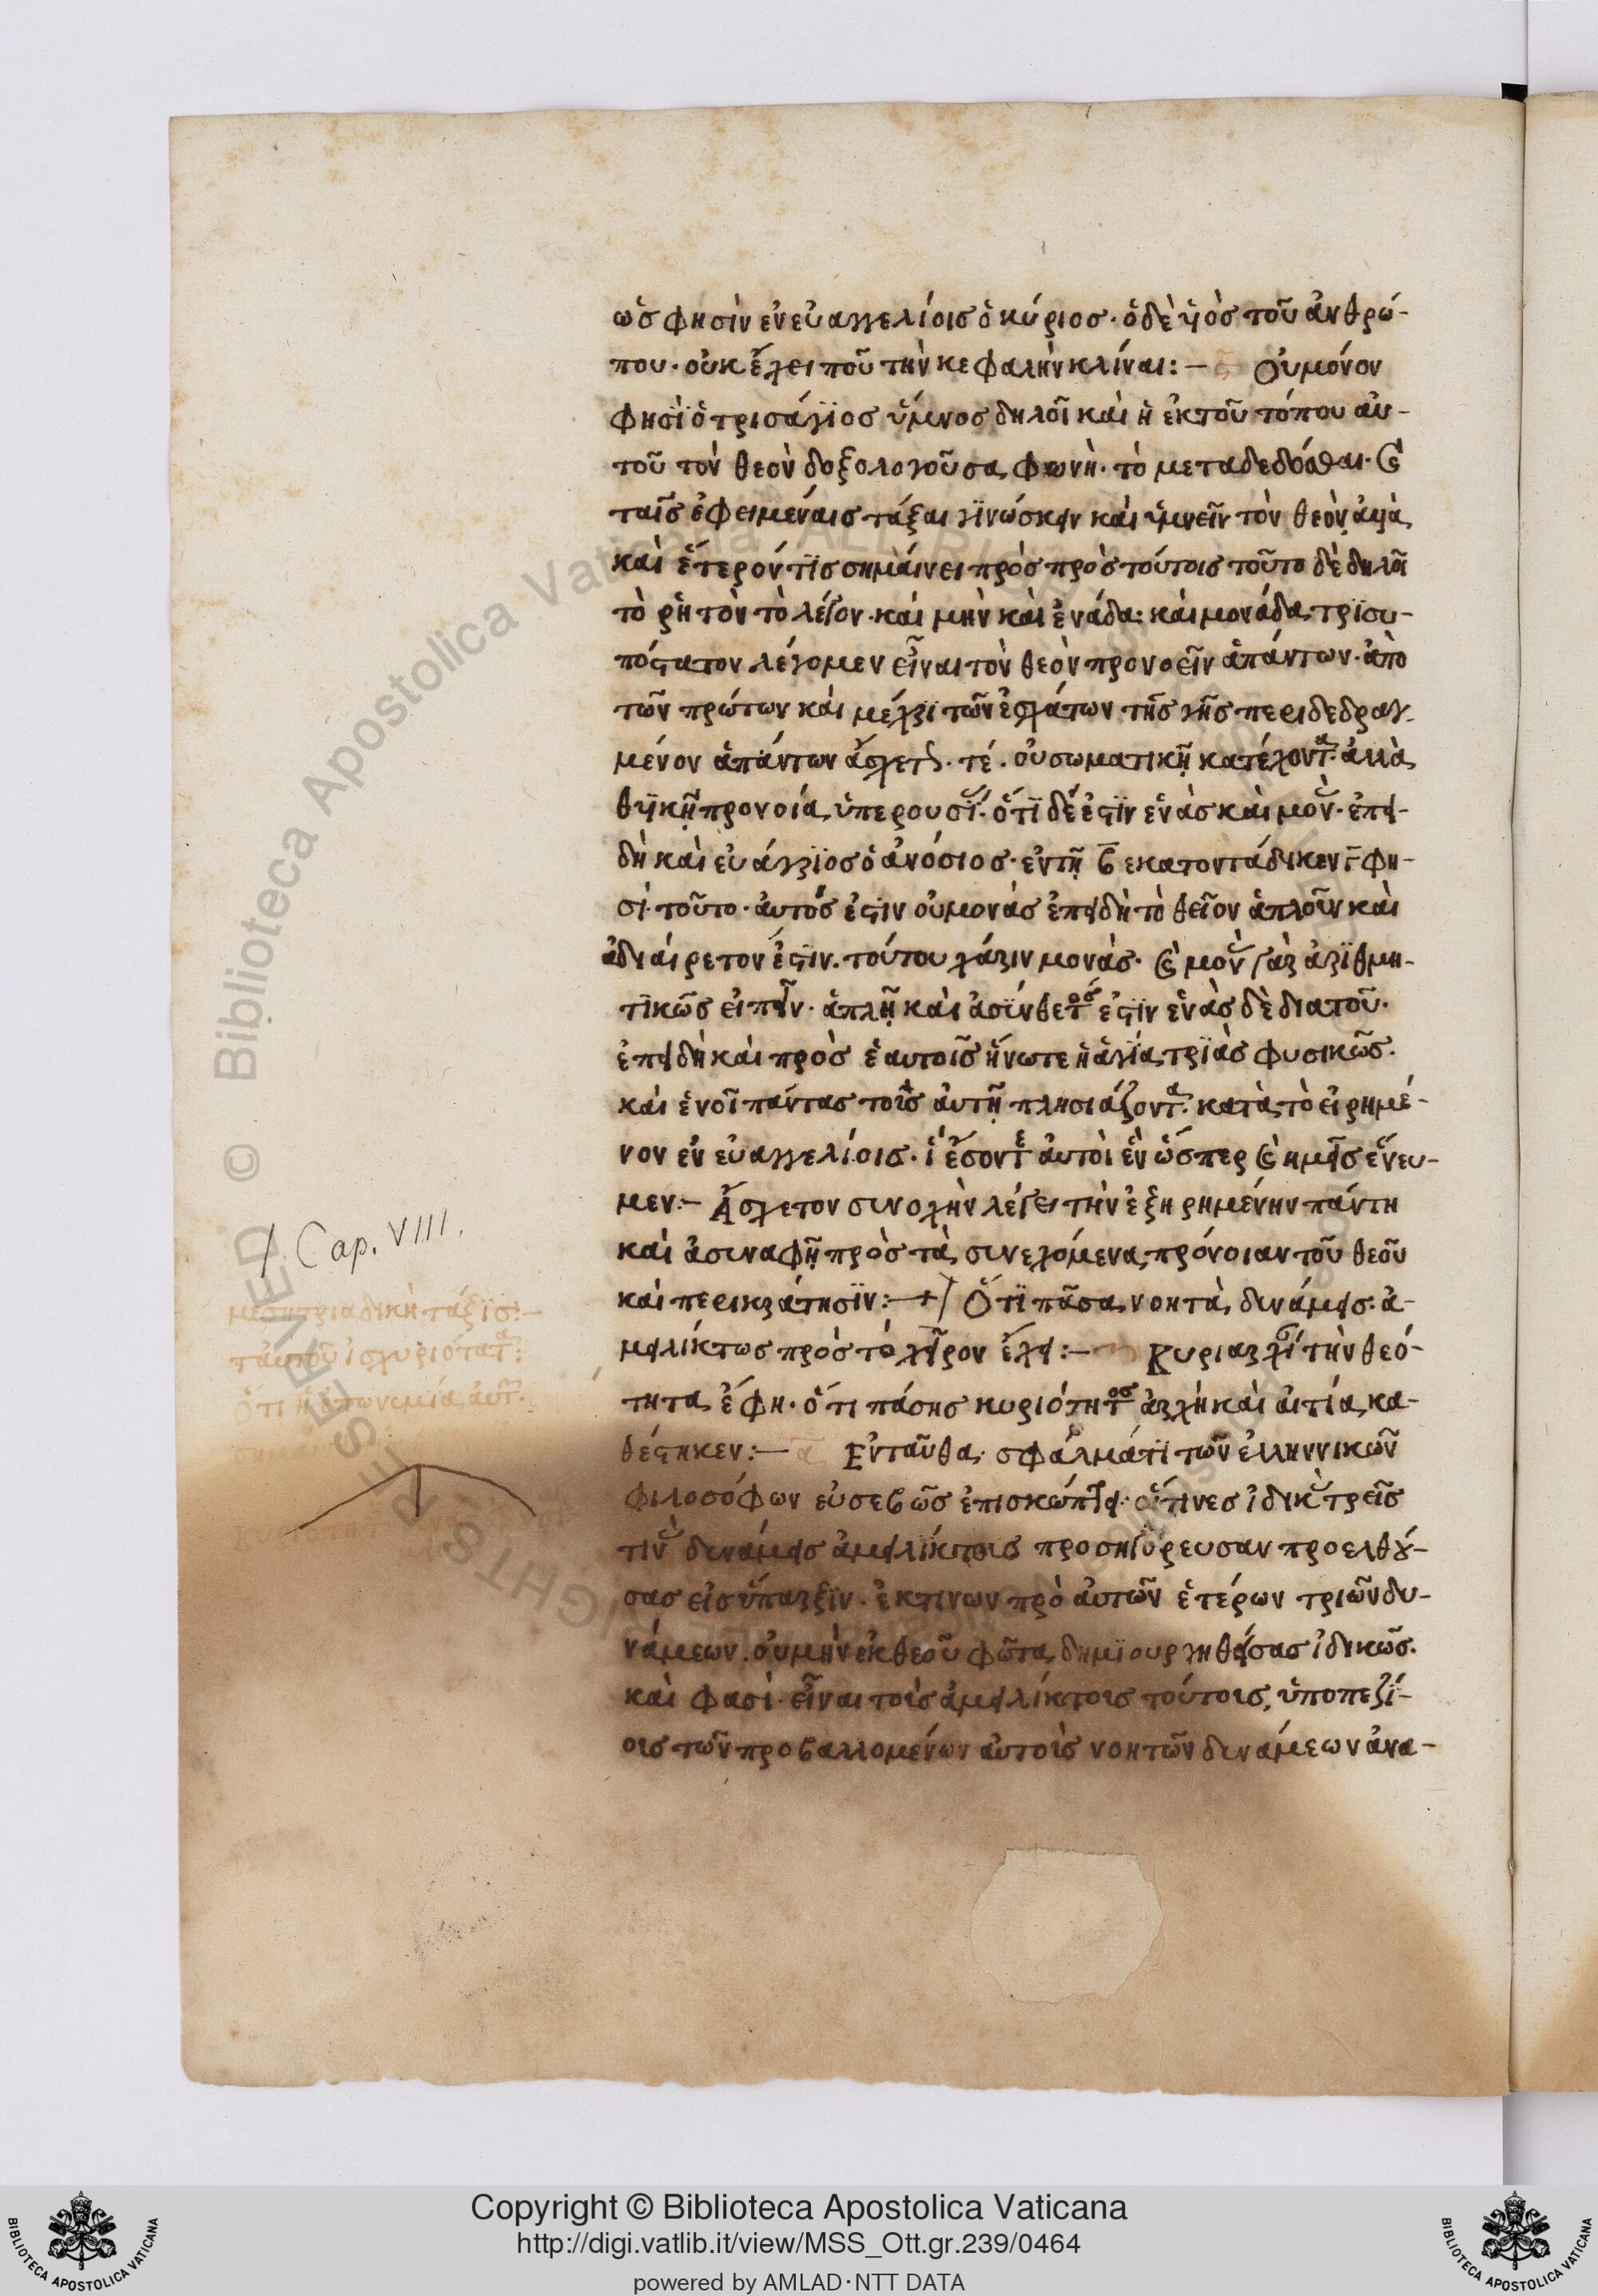 ὡς φησὶν ἐν εὐαγγελίοις ὁ κύριος· ὁ δὲ υἱὸς τοῦ ἀνθρώ-
που· οὐκ ἔχει ποῦ τὴν κεφαλὴν κλίναι:— Οὐ μόνον
φησὶ ὁ τρισάγϊος ὕμνος δηλοῖ καὶ ἡ ἐκ τοῦ τόπου αὐ-
τοῦ τὸν θεὸν δοξολογοῦσα φωνὴ· τὸ μεταδεδόσθαι·
ταῖς ὑφειμέναις τάξαι γϊνώσκειν καὶ ὑμνεῖν τὸν θεὸν ἀλλὰ
καὶ ἕτερόν τϊ σημαίνει πρὸς πρὸς τούτοις τοῦτο δὲ δηλοῖ
τὸ ῥητὸν τὸ λέγον· καὶ μὴν καὶ ἑνάδα: καὶ μονάδα τρϊσυ-
πόστατον λέγομεν εἶναι τὸν θεὸν προνοεῖν ἁπάντων· ἀπὸ
τῶν πρώτων καὶ μέχρϊ τῶν ἐσχάτων τῆς γῆς περιδεδραγ-
μένον ἁπάντων ἀσχέτ· τέ· οὐ σωματικῇ κατέχοντα· ἀλλὰ
θϊκῇ προνοία ὑπερουσϊ· ὅτϊ δέ ἐστϊν ἑνὰς καὶ μον· ἐπει-
δὴ καὶ εὐάγρϊος ὁ ἀνόσιος· ἐν τῇ β εκατοντάδι κεν γ φη-
σί· τοῦτο· αὐτὸς ἐστϊν οὐ μονὰς ἐπειδὴ τὸ θεῖον ἁπλοῦν καὶ
ἀδιαίρετον ἐστϊν· τούτου χάριν μονὰς· καὶ μον γὰρ ἀρϊθμη-
τϊκῶς εἰπεῖν· ἁπλῆ καὶ ἀσύνθετος ἐστϊν ἑνὰς δὲ διατοῦ·
ἐπειδὴ καὶ πρὸς ἑαυτοῖς ἥνωτε ἡ ἁγϊα τρϊὰς φυσικῶς·
καὶ ἑνοῖ πάντας τοῖς αὐτῇ πλησιάζοντα· κατὰ τὸ εἰρημέ-
νον ἐν εὐαγγελίοις· ἵ ἔσοντε αὐτοὶ ἓν ὥσπερ καὶ ημεῖς ἕνευ-
μεν:— Ἄσχετον συνοχὴν λέγει τὴν ἐξηρημένην πάντη
καὶ ἀσυναφῇ πρὸς τὰ συνεχόμενα πρόνοιαν τοῦ θεοῦ
καὶ περικράτησϊν:—+/ Ὅτϊ πᾶσα νοητὰ δυνάμεις· ἀ-
μειλίκτως πρὸς τὸ χεῖρον ἔχει:— Κυριαρχί τὴν θεό-
τητα ἔφη· ὅτι πάσης κυριότητος ἀρχὴ καὶ αἰτία κα-
θέστηκεν:— Ἐνταῦθα σφάλμάτϊ τῶν ἑλληννικῶν
φιλοσόφων εὐσεβῶς ἐπισκώπτει· οἵτινες ἰδικ τρεῖς
τϊν δυνάμεις ἀμειλϊκτους προσηγόρευσαν προελθού-
σας εἰς ὕπαρξϊν· ἐκ τινων πρὸ αὐτῶν ἑτέρων τριῶν δυ-
νάμεων· οὐ μὴν ἐκ θεοῦ φῶτα δημϊουργηθείσας ἰδικῶς·
καὶ φασὶ· εἶναι τοὶς ἀμειλίκτοις τούτοις, ὑποπεζϊ-
οις τῶν προβαλλομένων αὐτοὶς νοητῶν δυνάμεων ἀνα-
/ Cap. VIII.
μεσητριαδικὴ τάξϊς:—
ταυτοῦ ἰσχυριότατα:
ὅτι ἡ ἐπωνεμία αὐτ.
Copyright © Biblioteca Apostolica Vaticana
http://digi.vatlib.it/view/MSS_Ott.gr.239/0464
powered by AMLAD·NTT DATA
BIBLIOTECA APOSTOLICA VATICANA
BIBLIOTECA APOSTOLICA VATICANA
© Biblioteca Apostolica Vaticana ALL RIGHTS RESERVED